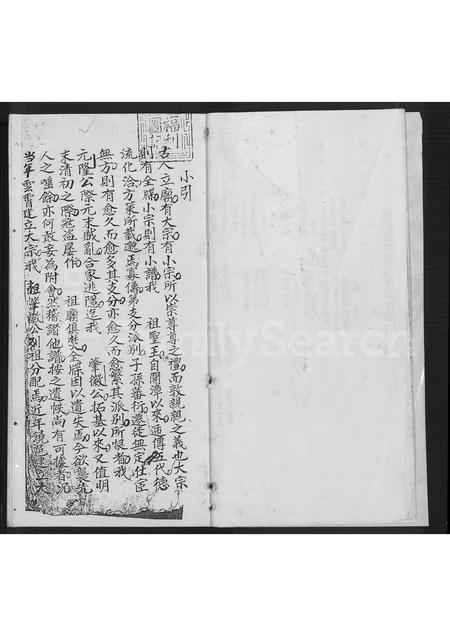 小引
古人立廟有大宗有小宗所以崇尊尊之禮而敦親親之義也大宗
則有全牒小宗則有小譜我 祖聖王自開漳以來通傳五代德
流化洽方策所載遐為募傳弟支分派別子孫蕃衍遷徙無定仕宦
無方則有愈久而愈多其支分亦愈久而愈繁其派別所恨者我
元隆公際元末戲亂合家逃隱迄我 肇徽公拓基以來又值明
末清初之際寇盜屢作 祖廟俱焚全牒因以遺失焉今欲襲先
人之唾餘亦何敢妄為附會然稽諸他譜按之遺帙尚有可據者況
當年雲霄建立大宗我 祖肇徽公別祖分配焉近年
FamilySearch